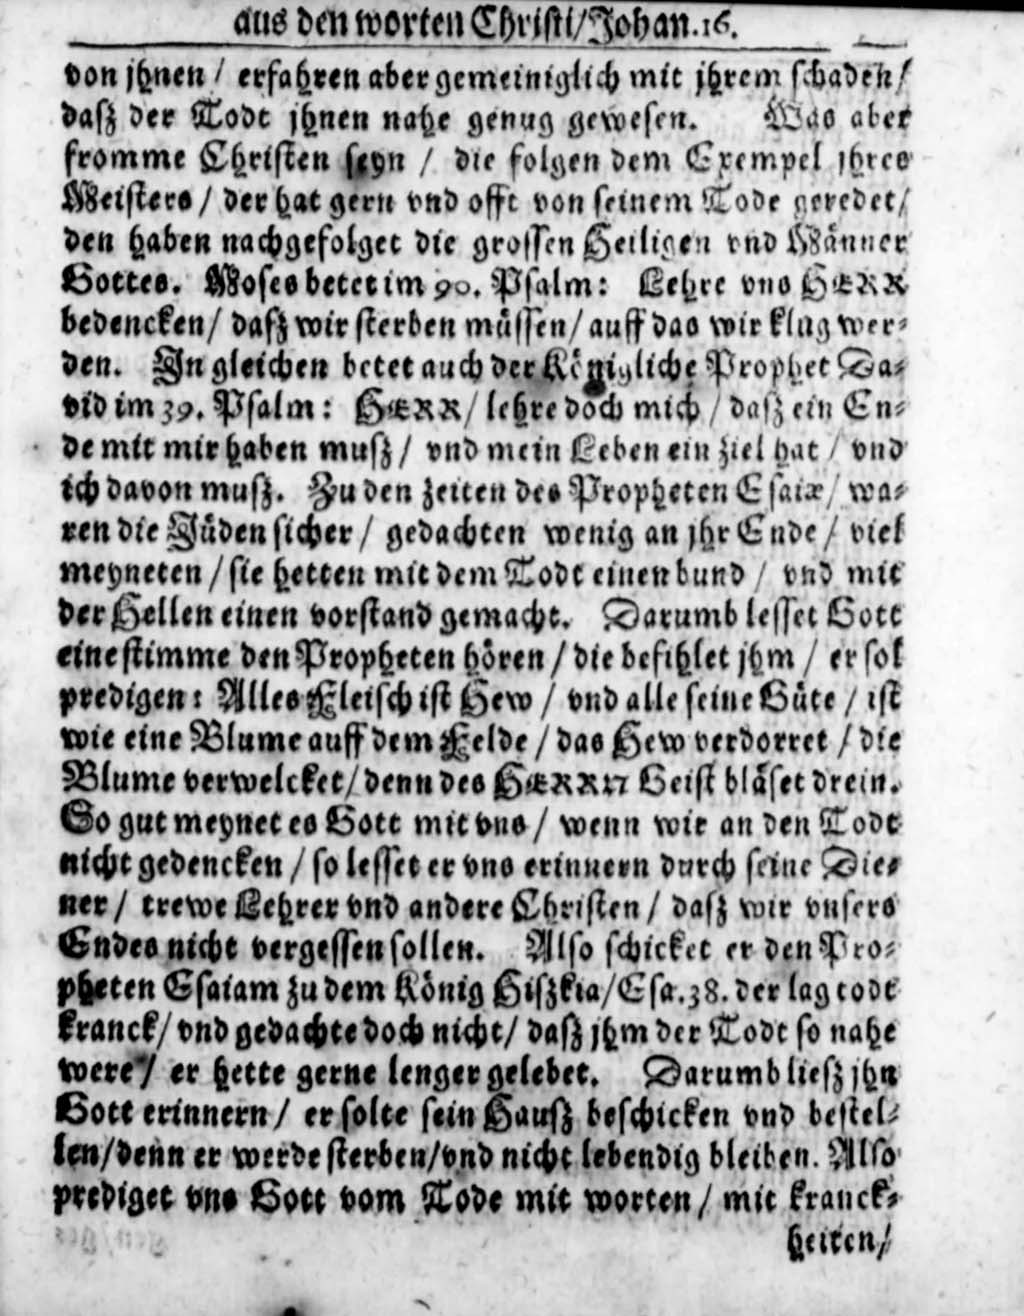 aus den worten Christi/Johan.16.
von jhnen / erfahren aber gemeiniglich mit jhrem schaden/
dasz der Todt jhnen nahe genug gewesen. Was aber
fromme Christen seyn / die folgen dem Exempel jhres
Meisters / der hat gern vnd offt von seinem Tode geredet/
den haben nachgefolget die grossen Heiligen vnd Männer
Gottes. Moses betet im 90. Psalm: Lehre vns HERR
bedencken/ dasz wir sterben müssen/ auff das wir klug wer-
den. In gleichen betet auch der Königliche Prophet Da-
vid im 39. Psalm: HERR/ lehre doch mich / dasz ein En-
de mit mir haben musz / vnd mein Leben ein ziel hat / vnd
ich davon musz. Zu den zeiten des Propheten Esaiæ/ wa-
ren die Jüden sicher / gedachten wenig an jhr Ende / viel
meyneten / sie hetten mit dem Todt einen bund / vnd mit
der Hellen einen vorstand gemacht. Darumb lesset Gott
eine stimme den Propheten hören / die befihlet jhm / er sol
predigen: Alles Fleisch ist Hew / vnd alle seine Güte / ist
wie eine Blume auff dem Felde / das Hew verdorret / die
Blume verwelcket/ denn des HERRN Geist bläset drein.
So gut meynet es Gott mit vns / wenn wir an den Todt
nicht gedencken / so lesset er vns erinnern durch seine Die-
ner / trewe Lehrer vnd andere Christen / dasz wir vnsers
Endes nicht vergessen sollen. Also schicket er den Pro-
pheten Esaiam zu dem König Hiszkia/Esa.38. der lag todt
kranck/ vnd gedachte doch nicht/ dasz jhm der Todt so nahe
were / er hette gerne lenger gelebet. Darumb liesz jhn
Gott erinnern / er solte sein Hausz beschicken vnd bestel-
len/denn er werde sterben/vnd nicht lebendig bleiben. Also
prediget vns Gott vom Tode mit worten / mit kranck-
heiten/